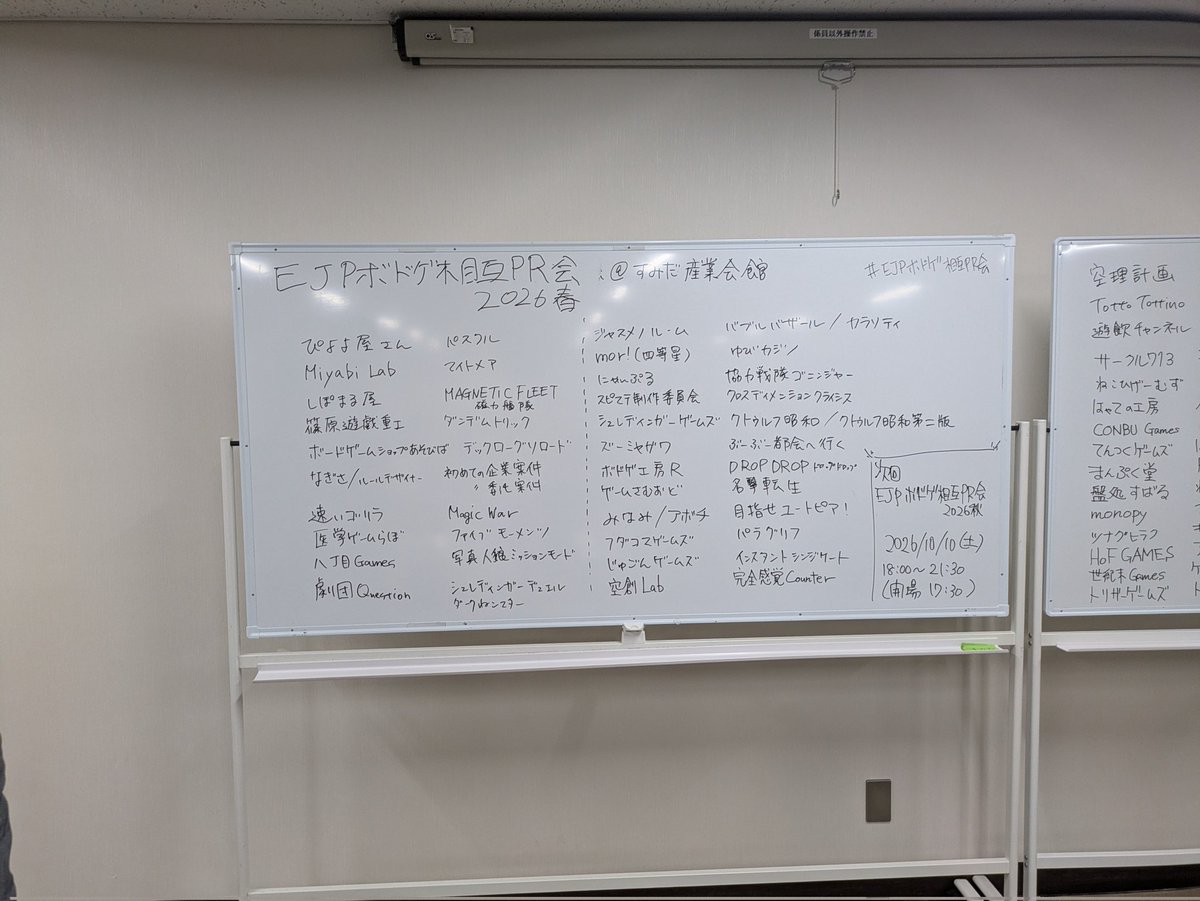 係員以外操作禁止
EJPボドゲ相互PR会 @すみだ産業会館
2026春
#EJPボドゲ相互PR会
ぴよよ屋さん パズクル
Miyabi Lab マイトメア
しぽまる屋 MAGNETIC FLEET
磁力艦隊
篠原遊戯重工 ダンデムトリック
ボードゲームショップあそびば デックローグリロード
なぎさ/ルールデザイナー 初めての企業案件
〃 委託案件
速いゴリラ Magic War
医学ゲームらぼ ファイブモーメンツ
八丁目Games 写真人狼ミッションモード
劇団Question シュレディンガーデュエル
ダークねンマター
ジャスメノルーム バブルバザール/カラソティ
mor!(四等星) ゆびカジノ
にゃんぷる 協力戦隊ゴニンジャー
スピマテ制作委員会 クロスディメンションクライシス
シュレディンガーゲームズ クトゥルフ昭和/クトゥルフ昭和第二版
ズーミヤザワ ぶーぶー都会へ行く
ボドゲ工房R DROP DROP ドロップドロップ
ゲームさむおど 名撃転生
みなみ/アボチ 目指せユートピア!
フダコマゲームズ パラグリフ
じゅごんゲームズ インスタントシンジケート
空創Lab 完全感覚Counter
次回
EJPボドゲ相互PR会
2026秋
2026/10/10(土)
18:00〜21:30
(開場 17:30)
空理計画
Totto Tottino
遊歓チャンネル
サークル713
ねこひげーむず
はゃての工房
CONBU Games
てんつくゲームズ
まんぷく堂
盤処すばる
monopy
ツナグヒラク
HoF GAMES
世紀末Games
トリガーゲームズ